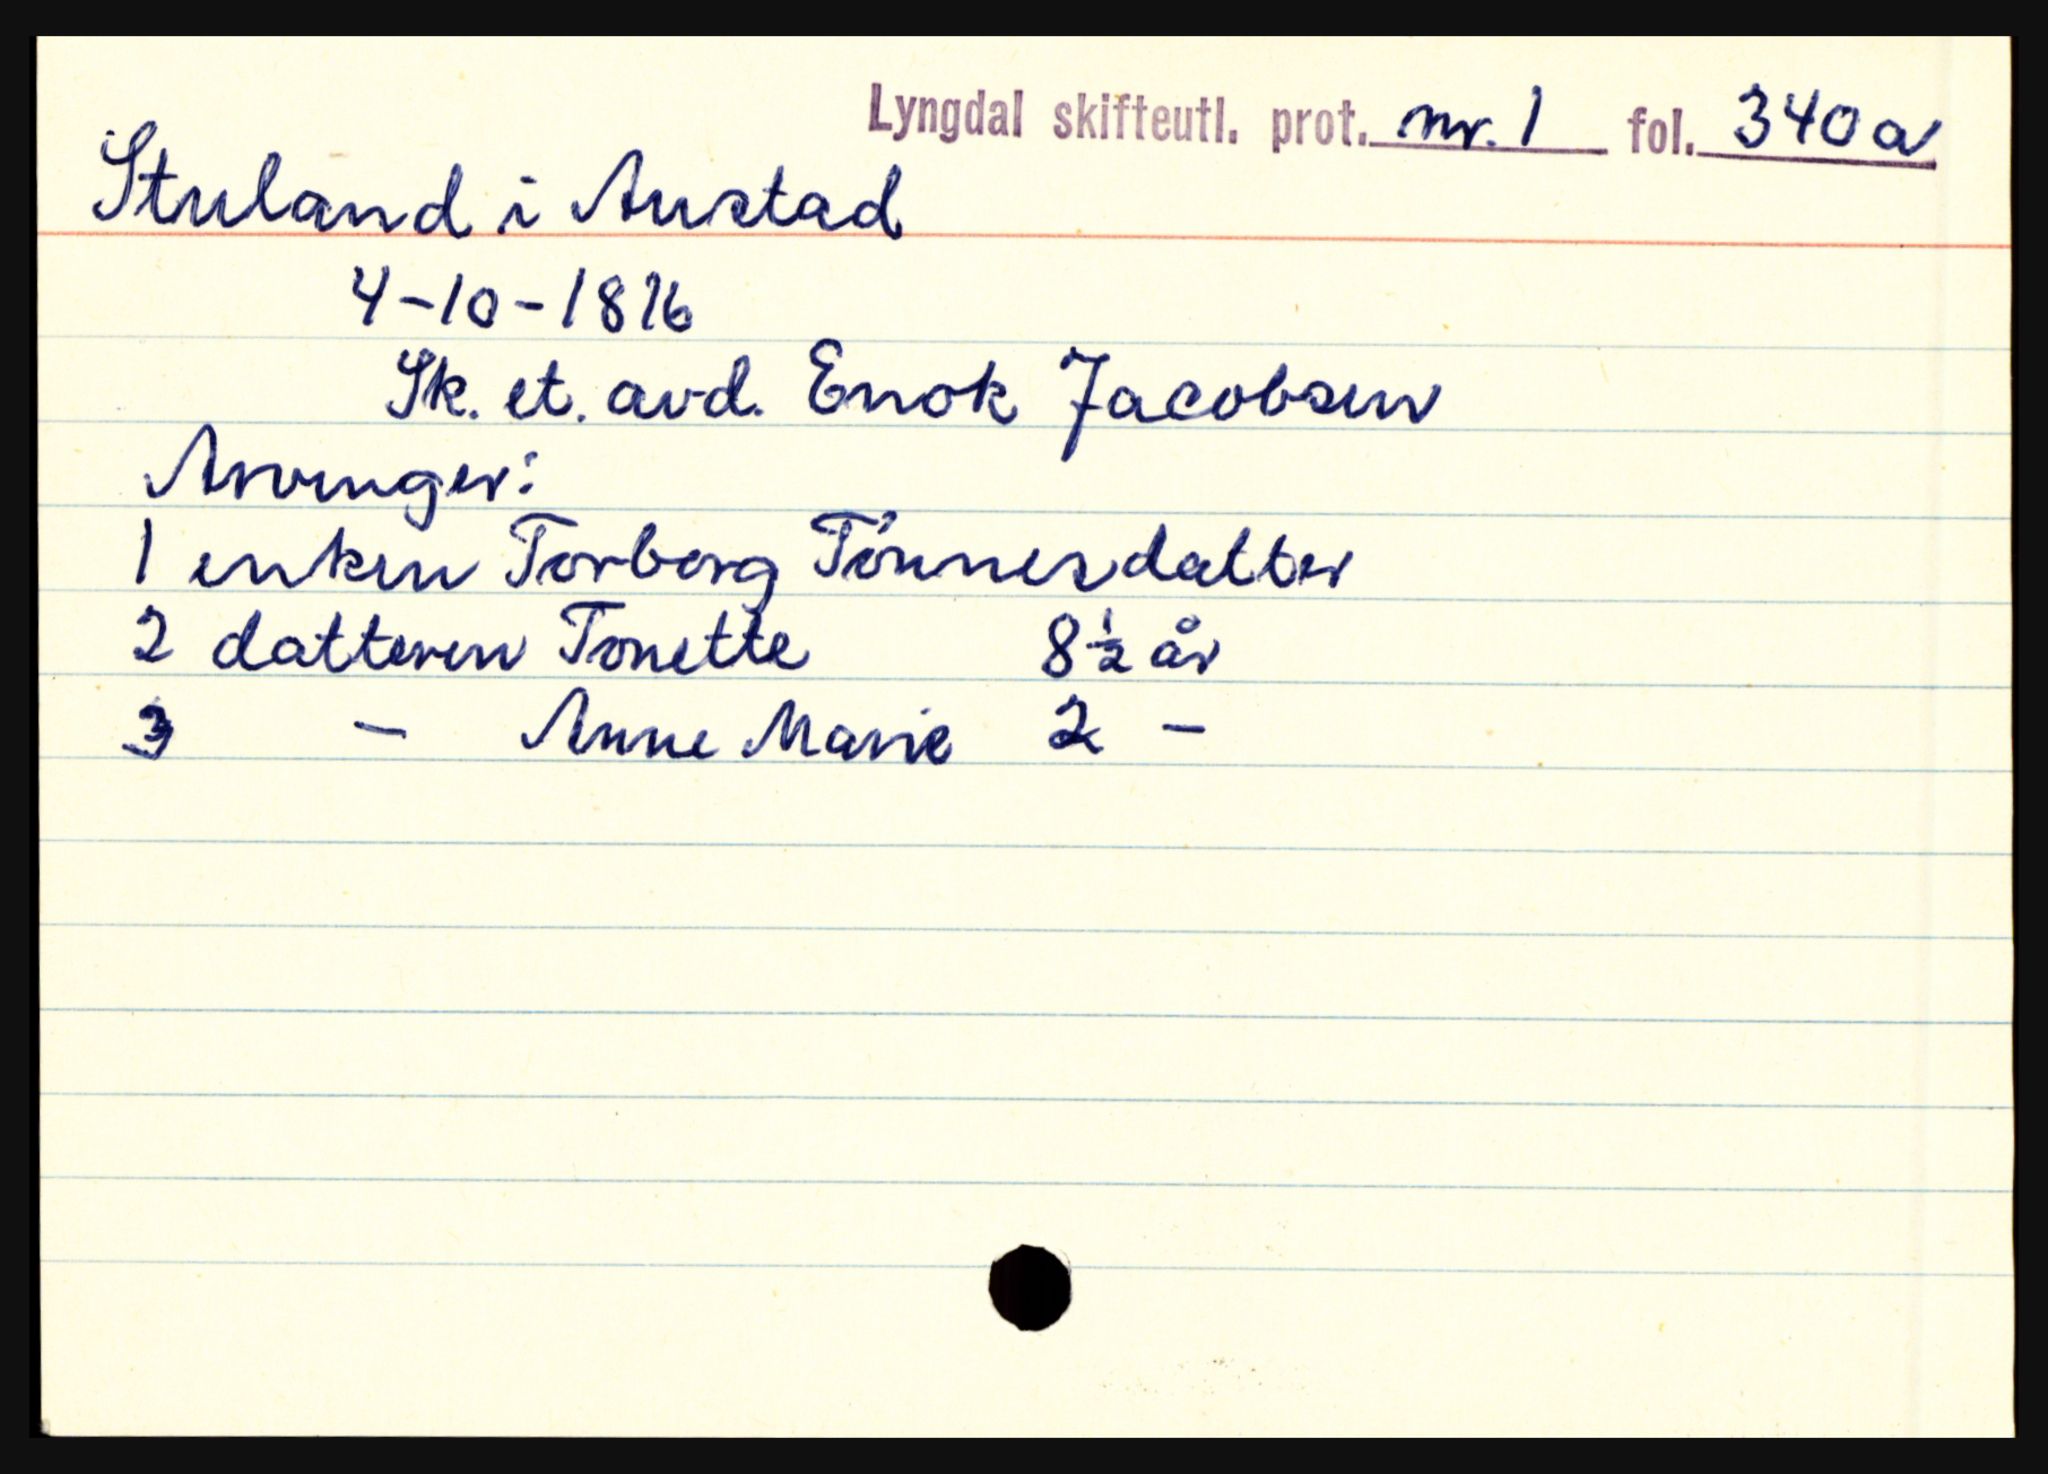 Lyngdal skifteutl. prot. nr. 1 fol. 340a
Stuland i Austad
4-10-1876
Sk. et. avd. Enok Jacobsen
Arvinger:
1 enken Torborg Tønnesdatter
2 datteren Tonette 8 ½ år
3 - Anne Marie 2 -